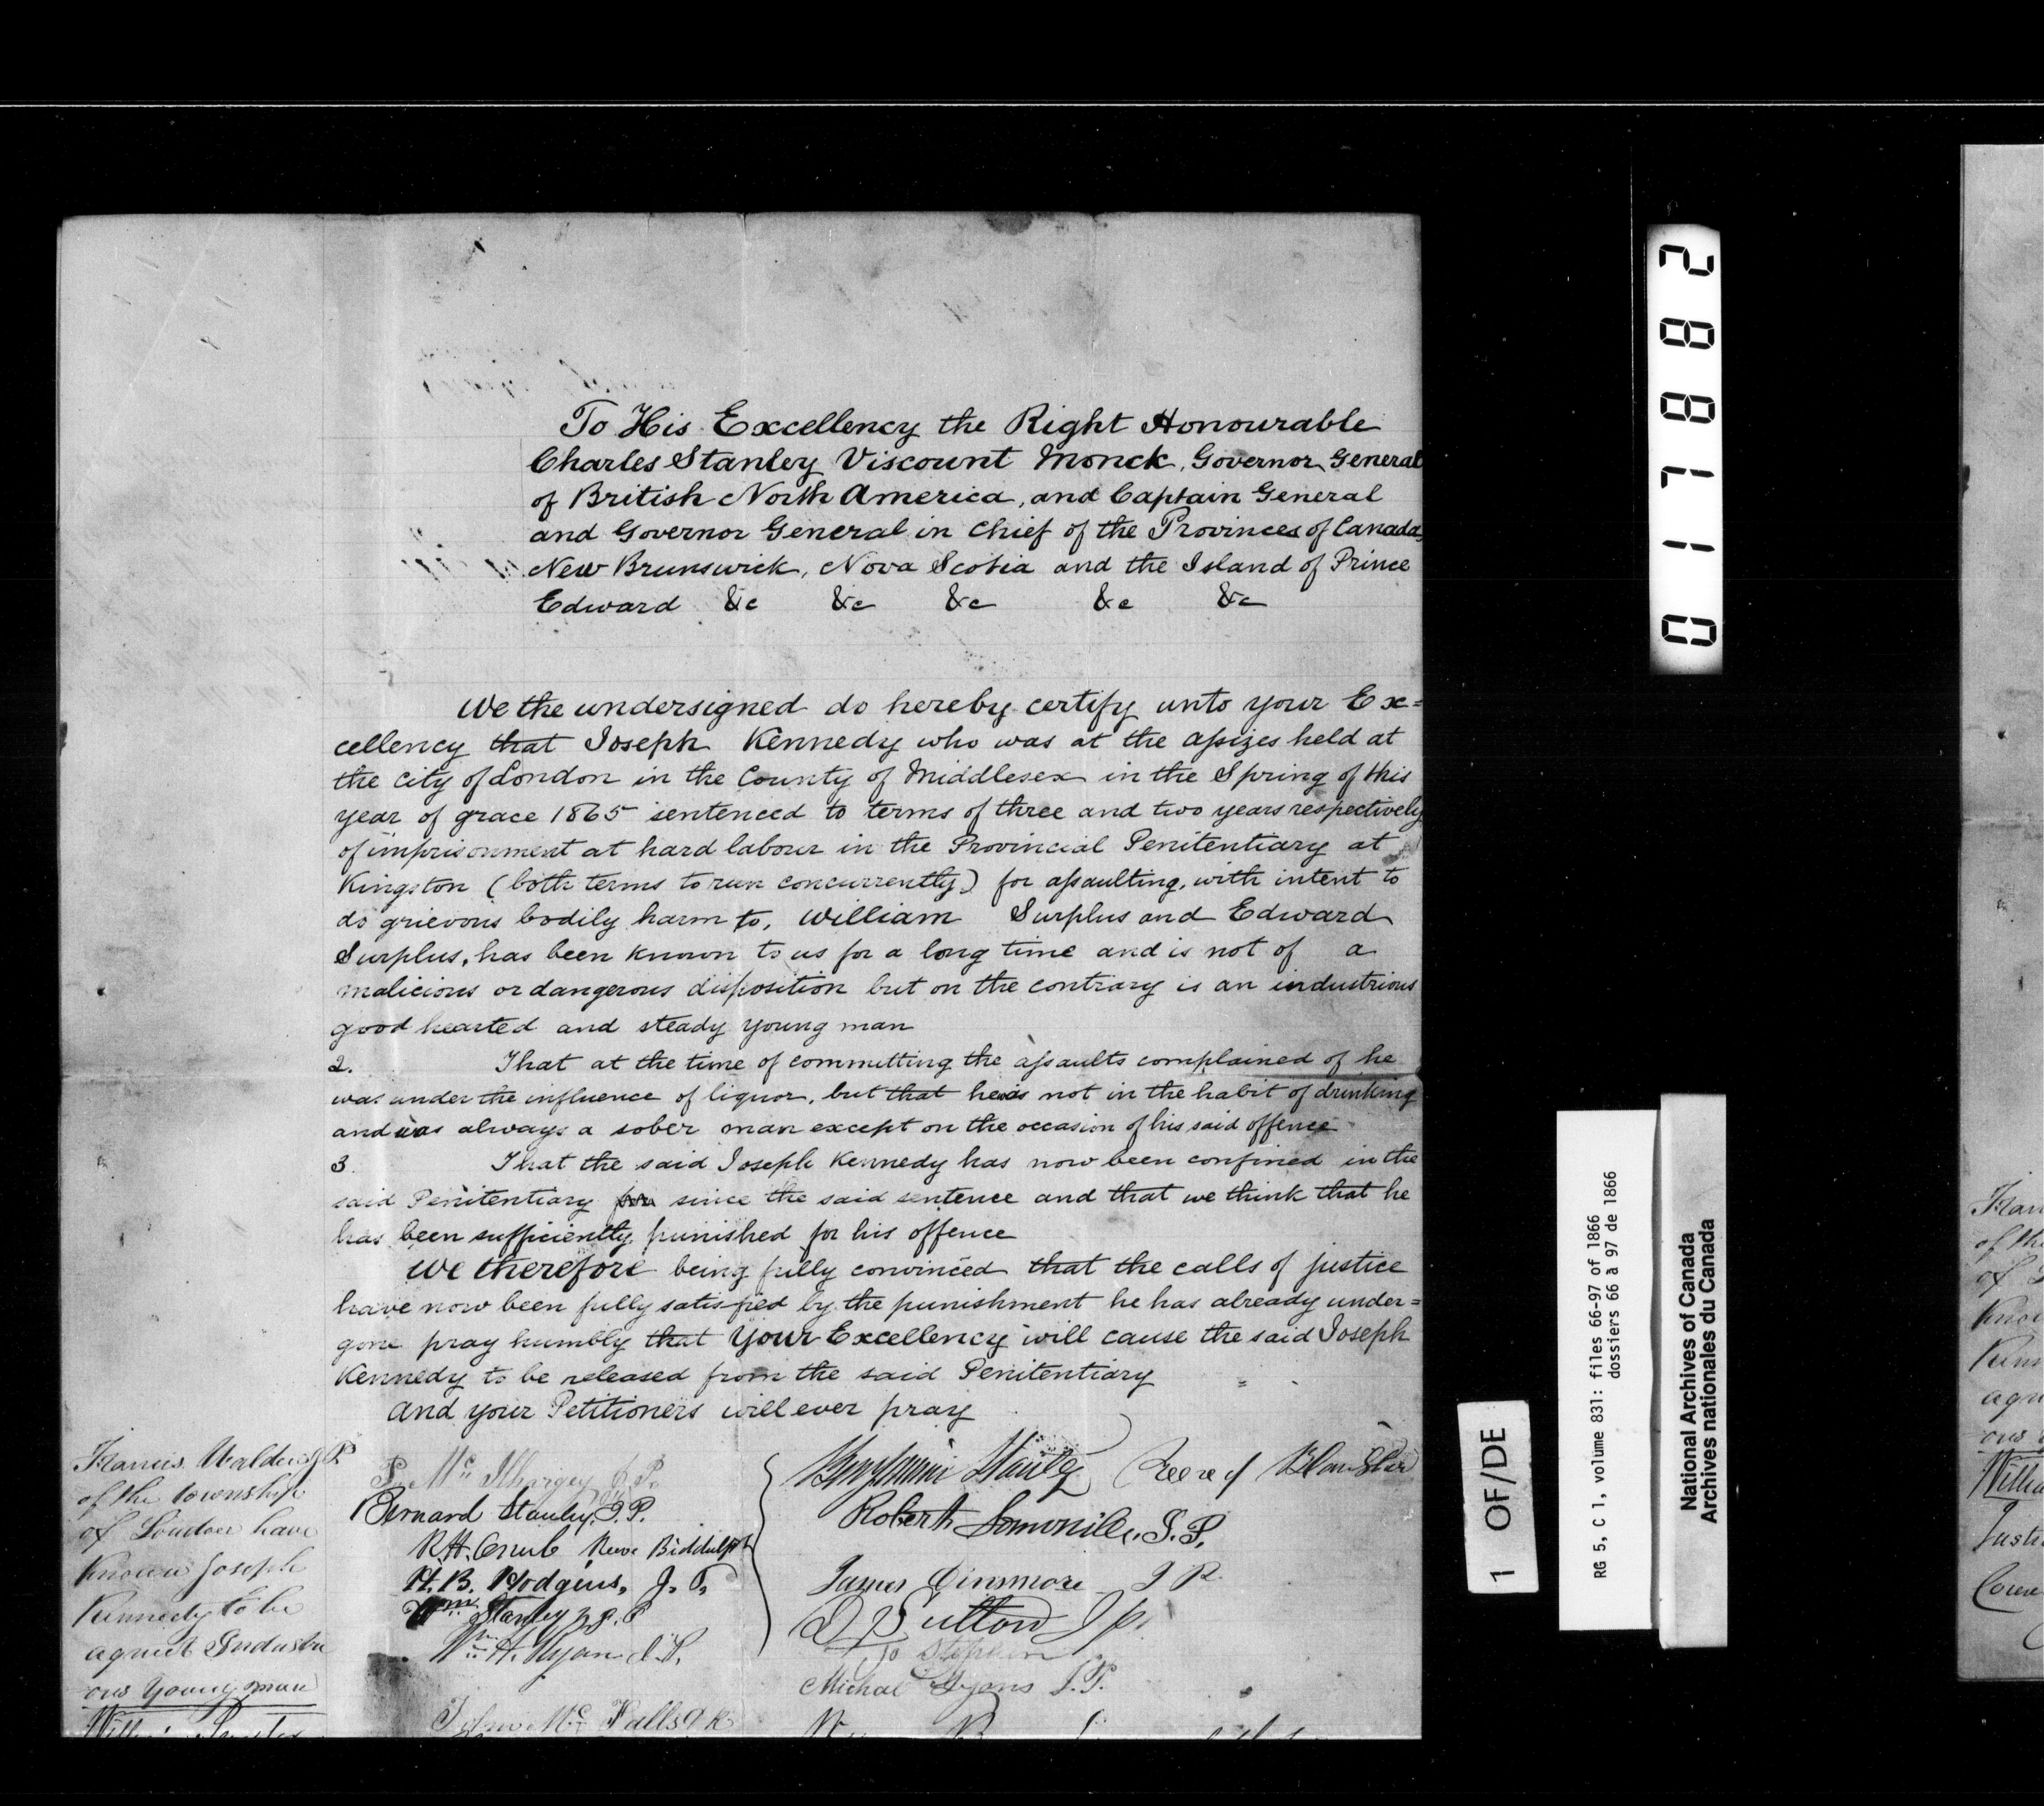 To His Excellency the Right Honourable
Charles Stanley Viscount Monck, Governor General
of British North America, and Captain General
and Governor General in Chief of the Provinces of Canada,
New Brunswick, Nova Scotia and the Island of Prince
Edward &c &c &c &c &c
We the undersigned do hereby certify unto your Ex=
cellency that Joseph Kennedy who was at the assizes held at
the City of London in the County of Middlesex in the Spring of this
year of grace 1865 sentenced to terms of three and two years respectively
of imprisonment at hard labour in the Provincial Penitentiary at
Kingston (both terms to run concurrently) for assaulting, with intent to
do grievous bodily harm to, William Surplus and Edward
Surplus, has been known to us for a long time and is not of a
malicious or dangerous disposition but on the contrary is an industrious
good hearted and steady young man
2. That at the time of committing the assaults complained of he
was under the influence of liquor, but that he is not in the habit of drinking
and was always a sober man except on the occasion of his said offence
3. That the said Joseph Kennedy has now been confined in the
said Penitentiary since the said sentence and that we think that he
has been sufficiently punished for his offence
We therefore being fully convinced that the calls of justice
have now been fully satisfied by the punishment he has already under=
gone pray humbly that Your Excellency will cause the said Joseph
Kennedy to be released from the said Penitentiary
and your Petitioners will ever pray
Francis Walden J P
of the township
of London have
known Joseph
Kennedy to be
a quiet Industri
ous Young man
P. Mc J.P.
Bernard Stanley, J.P.
R.H. Reeve Biddulph
H. B. Hodgins, J. P.
Wm Stanley J.P.
Wm H. Ryan J.P.
John Mc Falls
Benjamin Stanley Reeve of
Robert Somerville, J.P.
James Dinsmore J P.
Sutton J P.
Stephen
Michal Lyons J.P.
0171882
1 OF/DE
RG 5, C 1, volume 831: files 66-97 of 1866
dossiers 66 à 97 de 1866
National Archives of Canada
Archives nationales du Canada